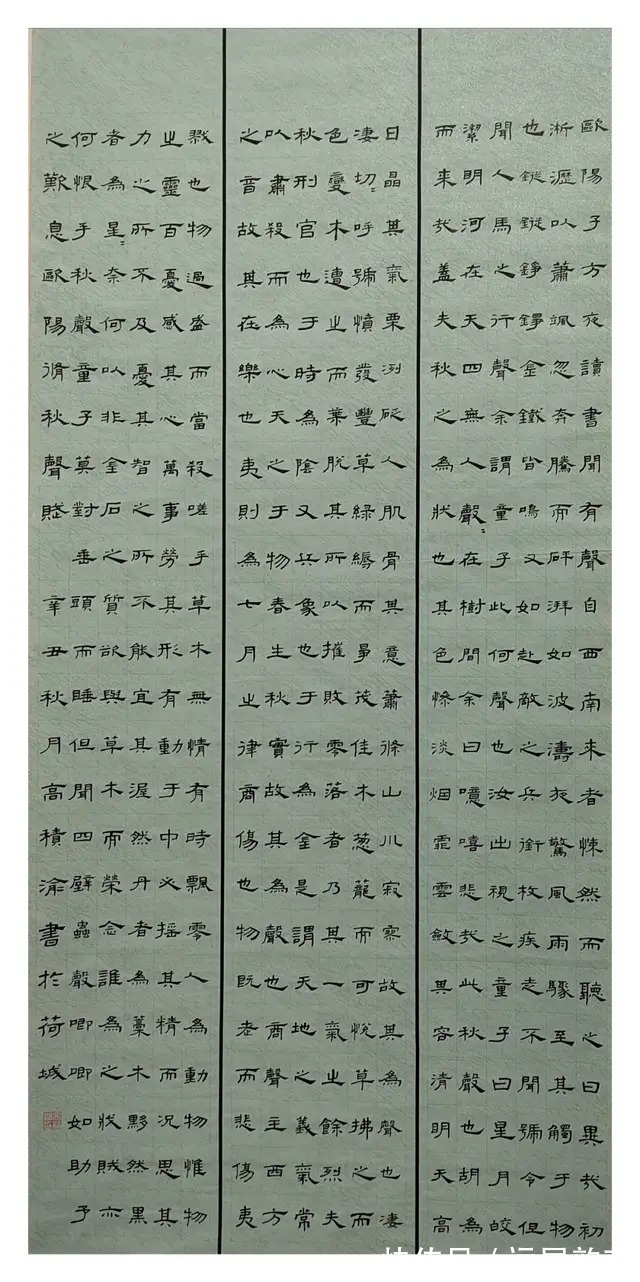 歐陽子方夜讀書聞有聲自西南來者悚然而聽之曰異哉初
淅瀝以蕭颯忽奔騰而砰湃如波濤夜驚風雨驟至其觸于物
也鏦鏦錚錚金鐵皆鳴又如赴敵之兵銜枚疾走不聞號令但
聞人馬之行聲余謂童子此何聲也汝出視之童子曰星月皎
潔明河在天四無人聲〻在樹間余曰噫嘻悲哉此秋聲也胡為
而來哉蓋夫秋之為狀也其色慘淡烟霏雲斂其容清明天高
日晶其氣栗冽砭人肌骨其意蕭條山川寂寥故其為聲也凄
凄切〻呼號憤發豐草綠縟而爭茂佳木葱蘢而可悅草拂之而
色變木遭之而葉脫其所以摧敗零落者乃其一氣之餘烈夫
秋刑官也于時為陰又兵象也于行為金是謂天地之義氣常
以肅殺而為心天之于物春生秋實故其為聲也商聲主西方
之音故其在樂也夷則為七月之律商傷也物既老而悲傷夷
戮也物過盛而當殺嗟乎草木無情有時飄零人為動物惟物
之靈百憂感其心萬事勞其形有動于中必搖其精而況思其
力之所不及憂其智之所不能宜其渥然丹者為槀木黟然黑
者為星〻奈何以非金石之質欲與草木而榮念誰為之戕賊亦
何恨乎秋聲童子莫對垂頭而睡但聞四壁蟲聲唧唧如助予
之歎息歐陽脩秋聲賦 辛丑秋月高積渝書於荷城